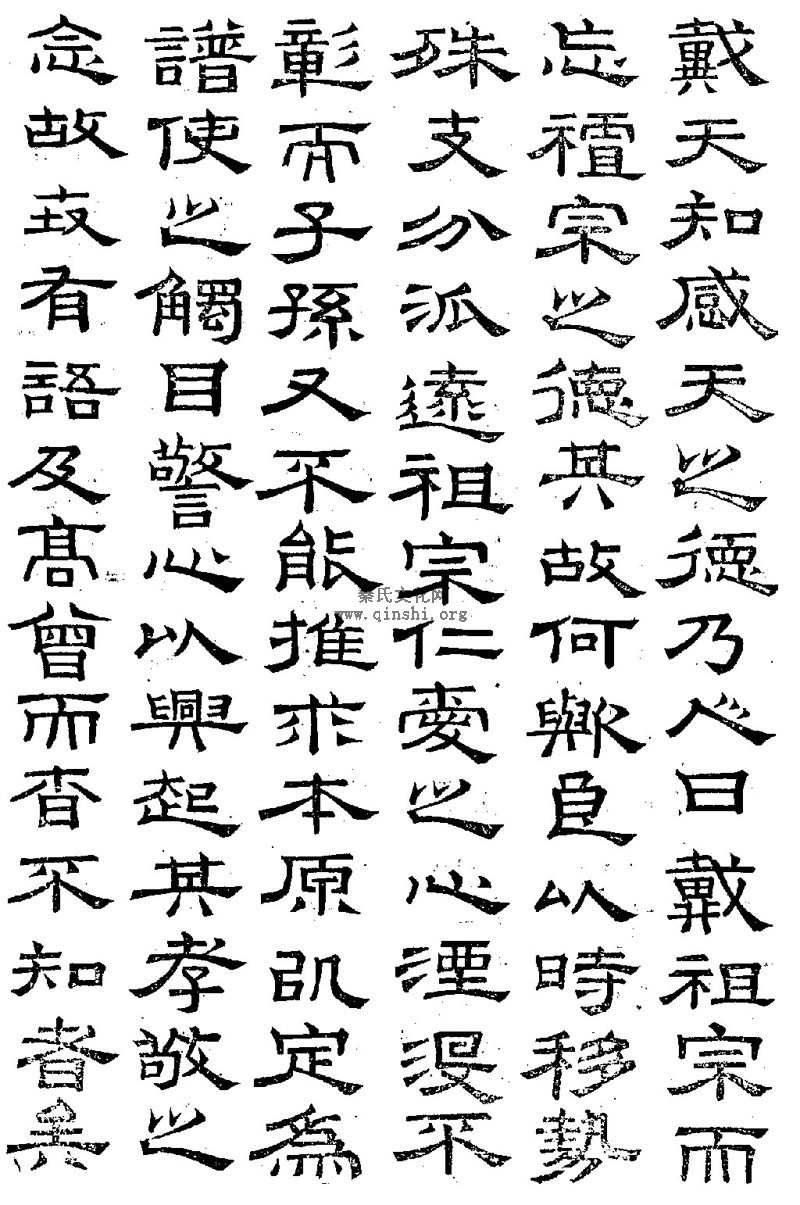 戴天知感天之德乃人日戴祖宗而
忘祖宗之德其故何與良以時移勢
殊支分派遠祖宗仁愛之心湮没不
彰而子孫又不能推求本原定為
譜使之觸目警心以興起其孝敬之
念故有語及高曾而杳不知者矣
秦氏文化网
www.qinshi.org